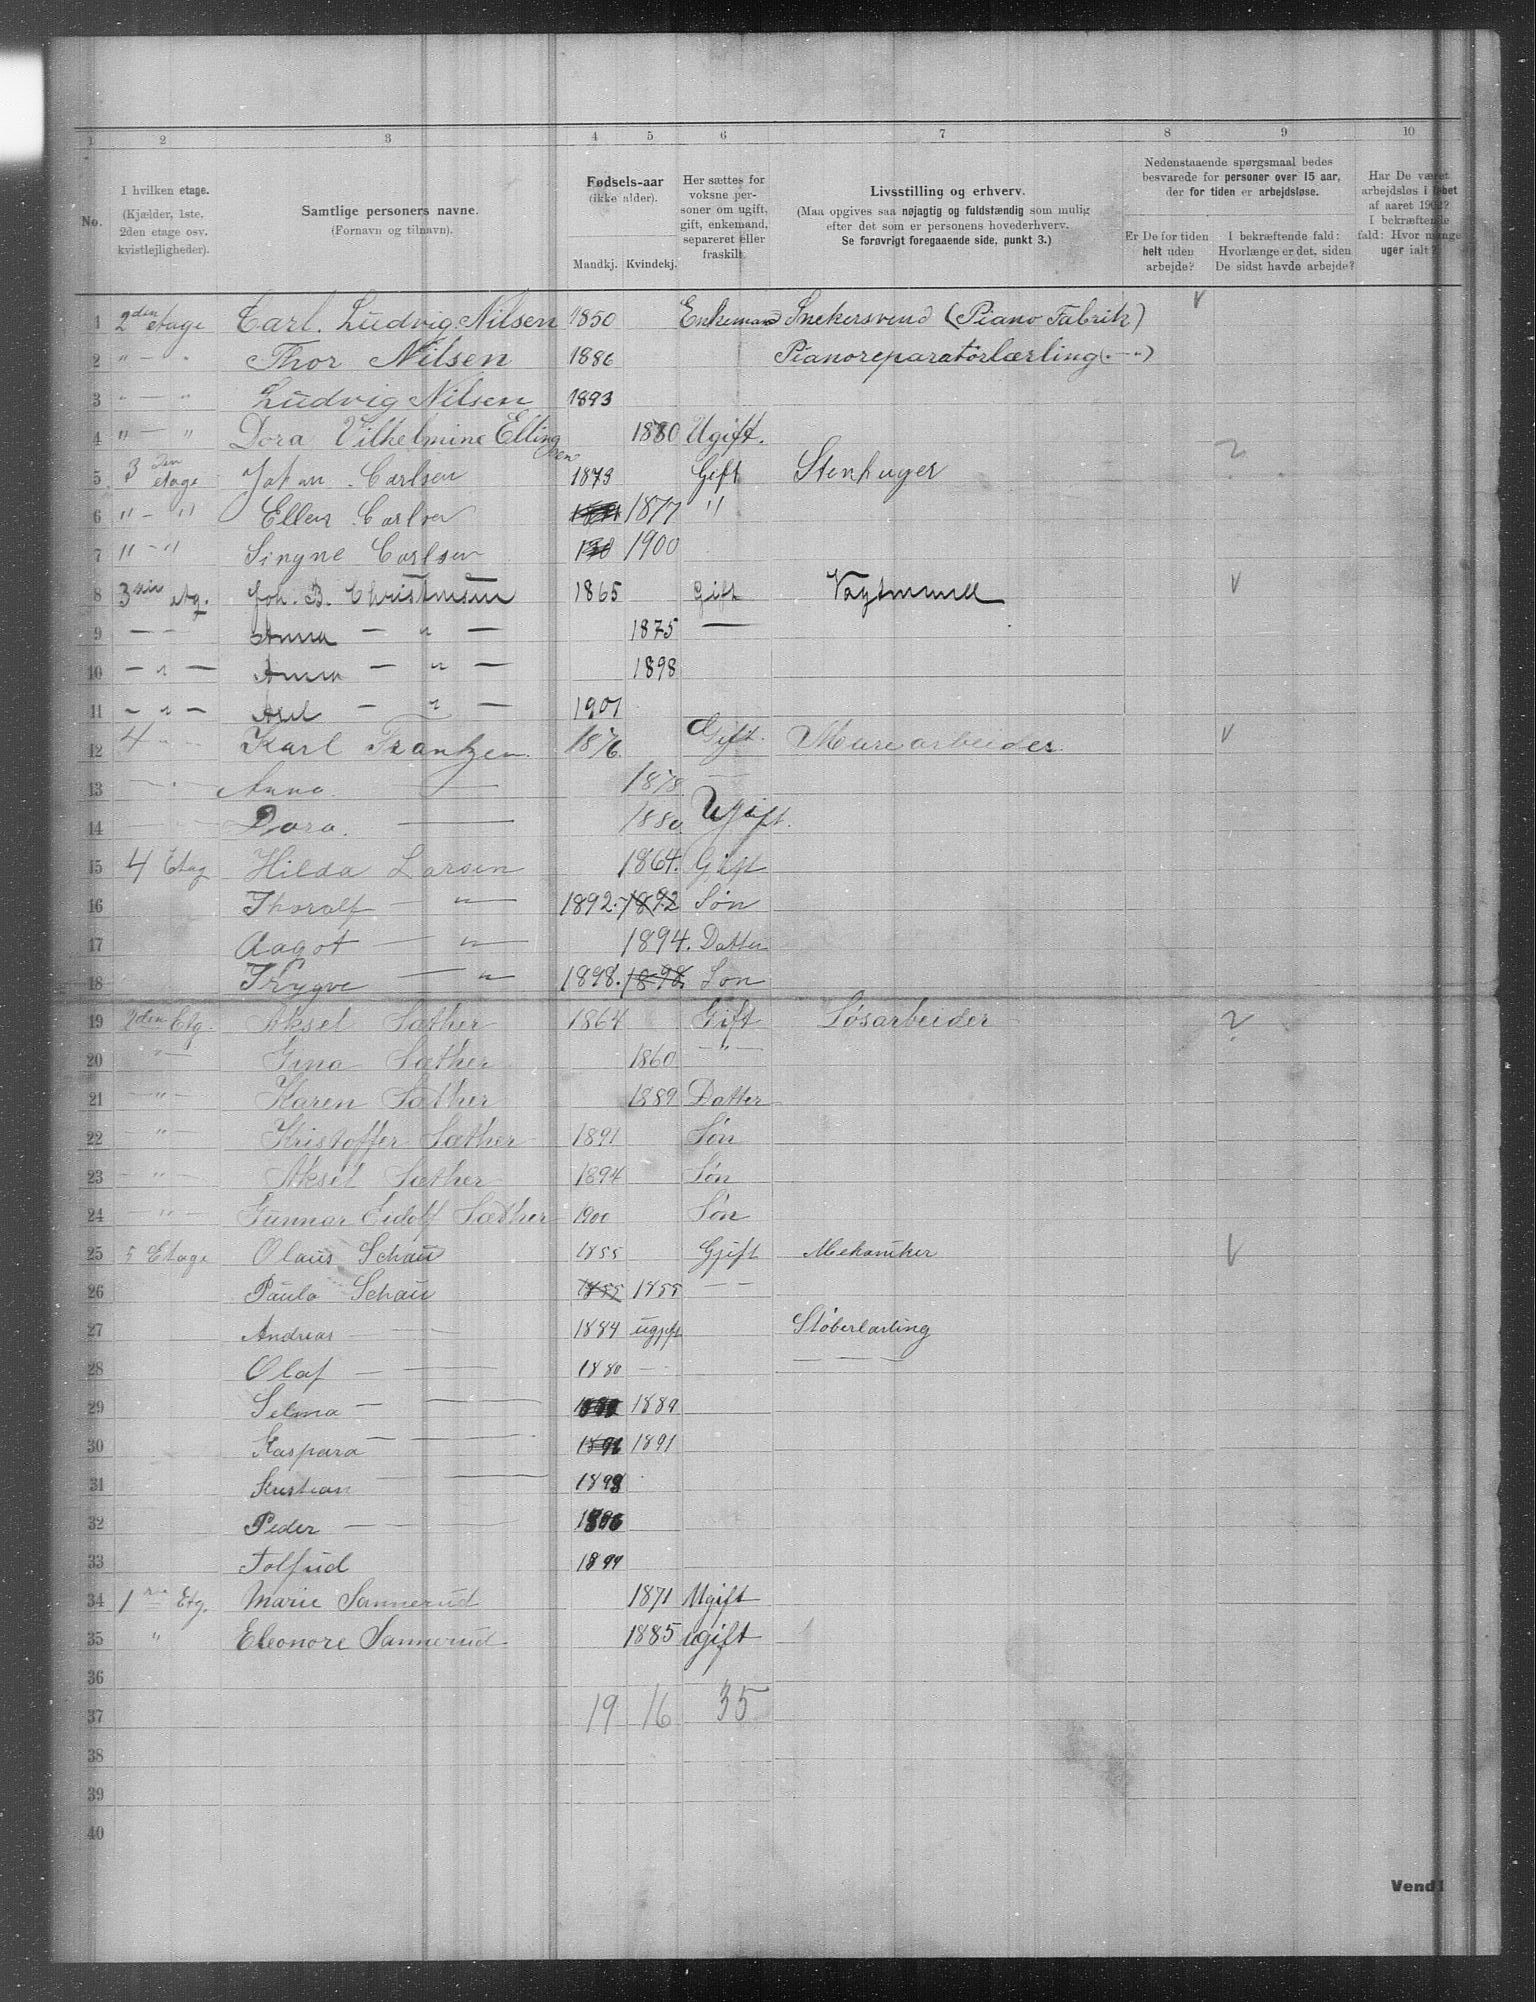 1 2 3 4 5 6 7 8 9 10
No.
I hvilken etage.
(Kjælder, 1ste.
2den etage osv.
kvistlejligheder).
Samtlige personers navne.
(Fornavn og tilnavn).
Fødsels-aar
(ikke alder).
Mandkj. Kvindekj.
Her sættes for
voksne per-
soner om ugift,
gift, enkemand,
separeret eller
fraskilt.
Livsstilling og erhverv.
(Maa opgives saa nøjagtig og fuldstændig som mulig
efter det som er personens hovederhverv.
Se forøvrigt foregaaende side, punkt 3.)
Nedenstaaende spørgsmaal bedes
besvarede for personer over 15 aar,
der for tiden er arbejdsløse.
Er De for tiden
helt uden
arbejde?
I bekræftende fald:
Hvorlænge er det, siden
De sidst havde arbejde?
Har De været
arbejdsløs i løbet
af aaret 1902?
I bekræftende
fald: Hvor mange
uger ialt?
1 2den etage Carl. Ludvig Nilsen 1850 Enkemand Snekersvend (Piano Fabrik) v
2 " — " Thor Nilsen 1886 Pianoreparatørlærling (" — ")
3 " — " Ludvig Nilsen 1893
4 " — " Dora Vilhelmine Ellingsen 1880 Ugift.
5 3den etage Johan Carlsen 1873 Gift Stenhuger ?
6 " — " Ellen Carlsen 1877 "
7 " — " Singne Carlsen 1900
8 3die etg. Joh. B. Christensen 1865 Gift Vagtmand v
9 — — Anna — " — 1875 —
10 — " — Anna — " — 1898
11 — " — Axel — " — 1901
12 4 " — Karl Frantzen. 1876. Gift. Murearbeider v
13 — " — Anna. — 1878. —
14 — — Dora. — 1880 Ugift.
15 4 Etag Hilda Larsen 1864. Gift
16 Thoralf — " — 1892. 1892 Søn
17 Aagot — " — 1894. Datter
18 Trygve — " 1898. 1898. Søn
19 2den Etg. Aksel Sæther 1864 Gift Løsarbeider ?
20 — " — Gina Sæther 1860 — " —
21 — " — Karen Sæther 1889 Datter
22 — " — Kristoffer Sæther 1891 Søn
23 — " — Aksel Sæther 1894 Søn
24 — " — Gunnar Eidolf Sæther 1900 Søn
25 5 Etage Olaus Schau 1855 Gjift Mekaniker v
26 Paula Schau 1855 1855 — —
27 Andreas — 1884 ugjift Støberlærling
28 Olaf — 1880 — —
29 Selma — 1889
30 Kaspara — 1891
31 Kristian — 1893
32 Peder —
33 Tolfud 1899
34 1ste Etg. Marie Sannerud 1871 Ugift
35 " Eleonore Sannerud. 1885 ugift
36
37 19 16 35
38
39
40
Vend!